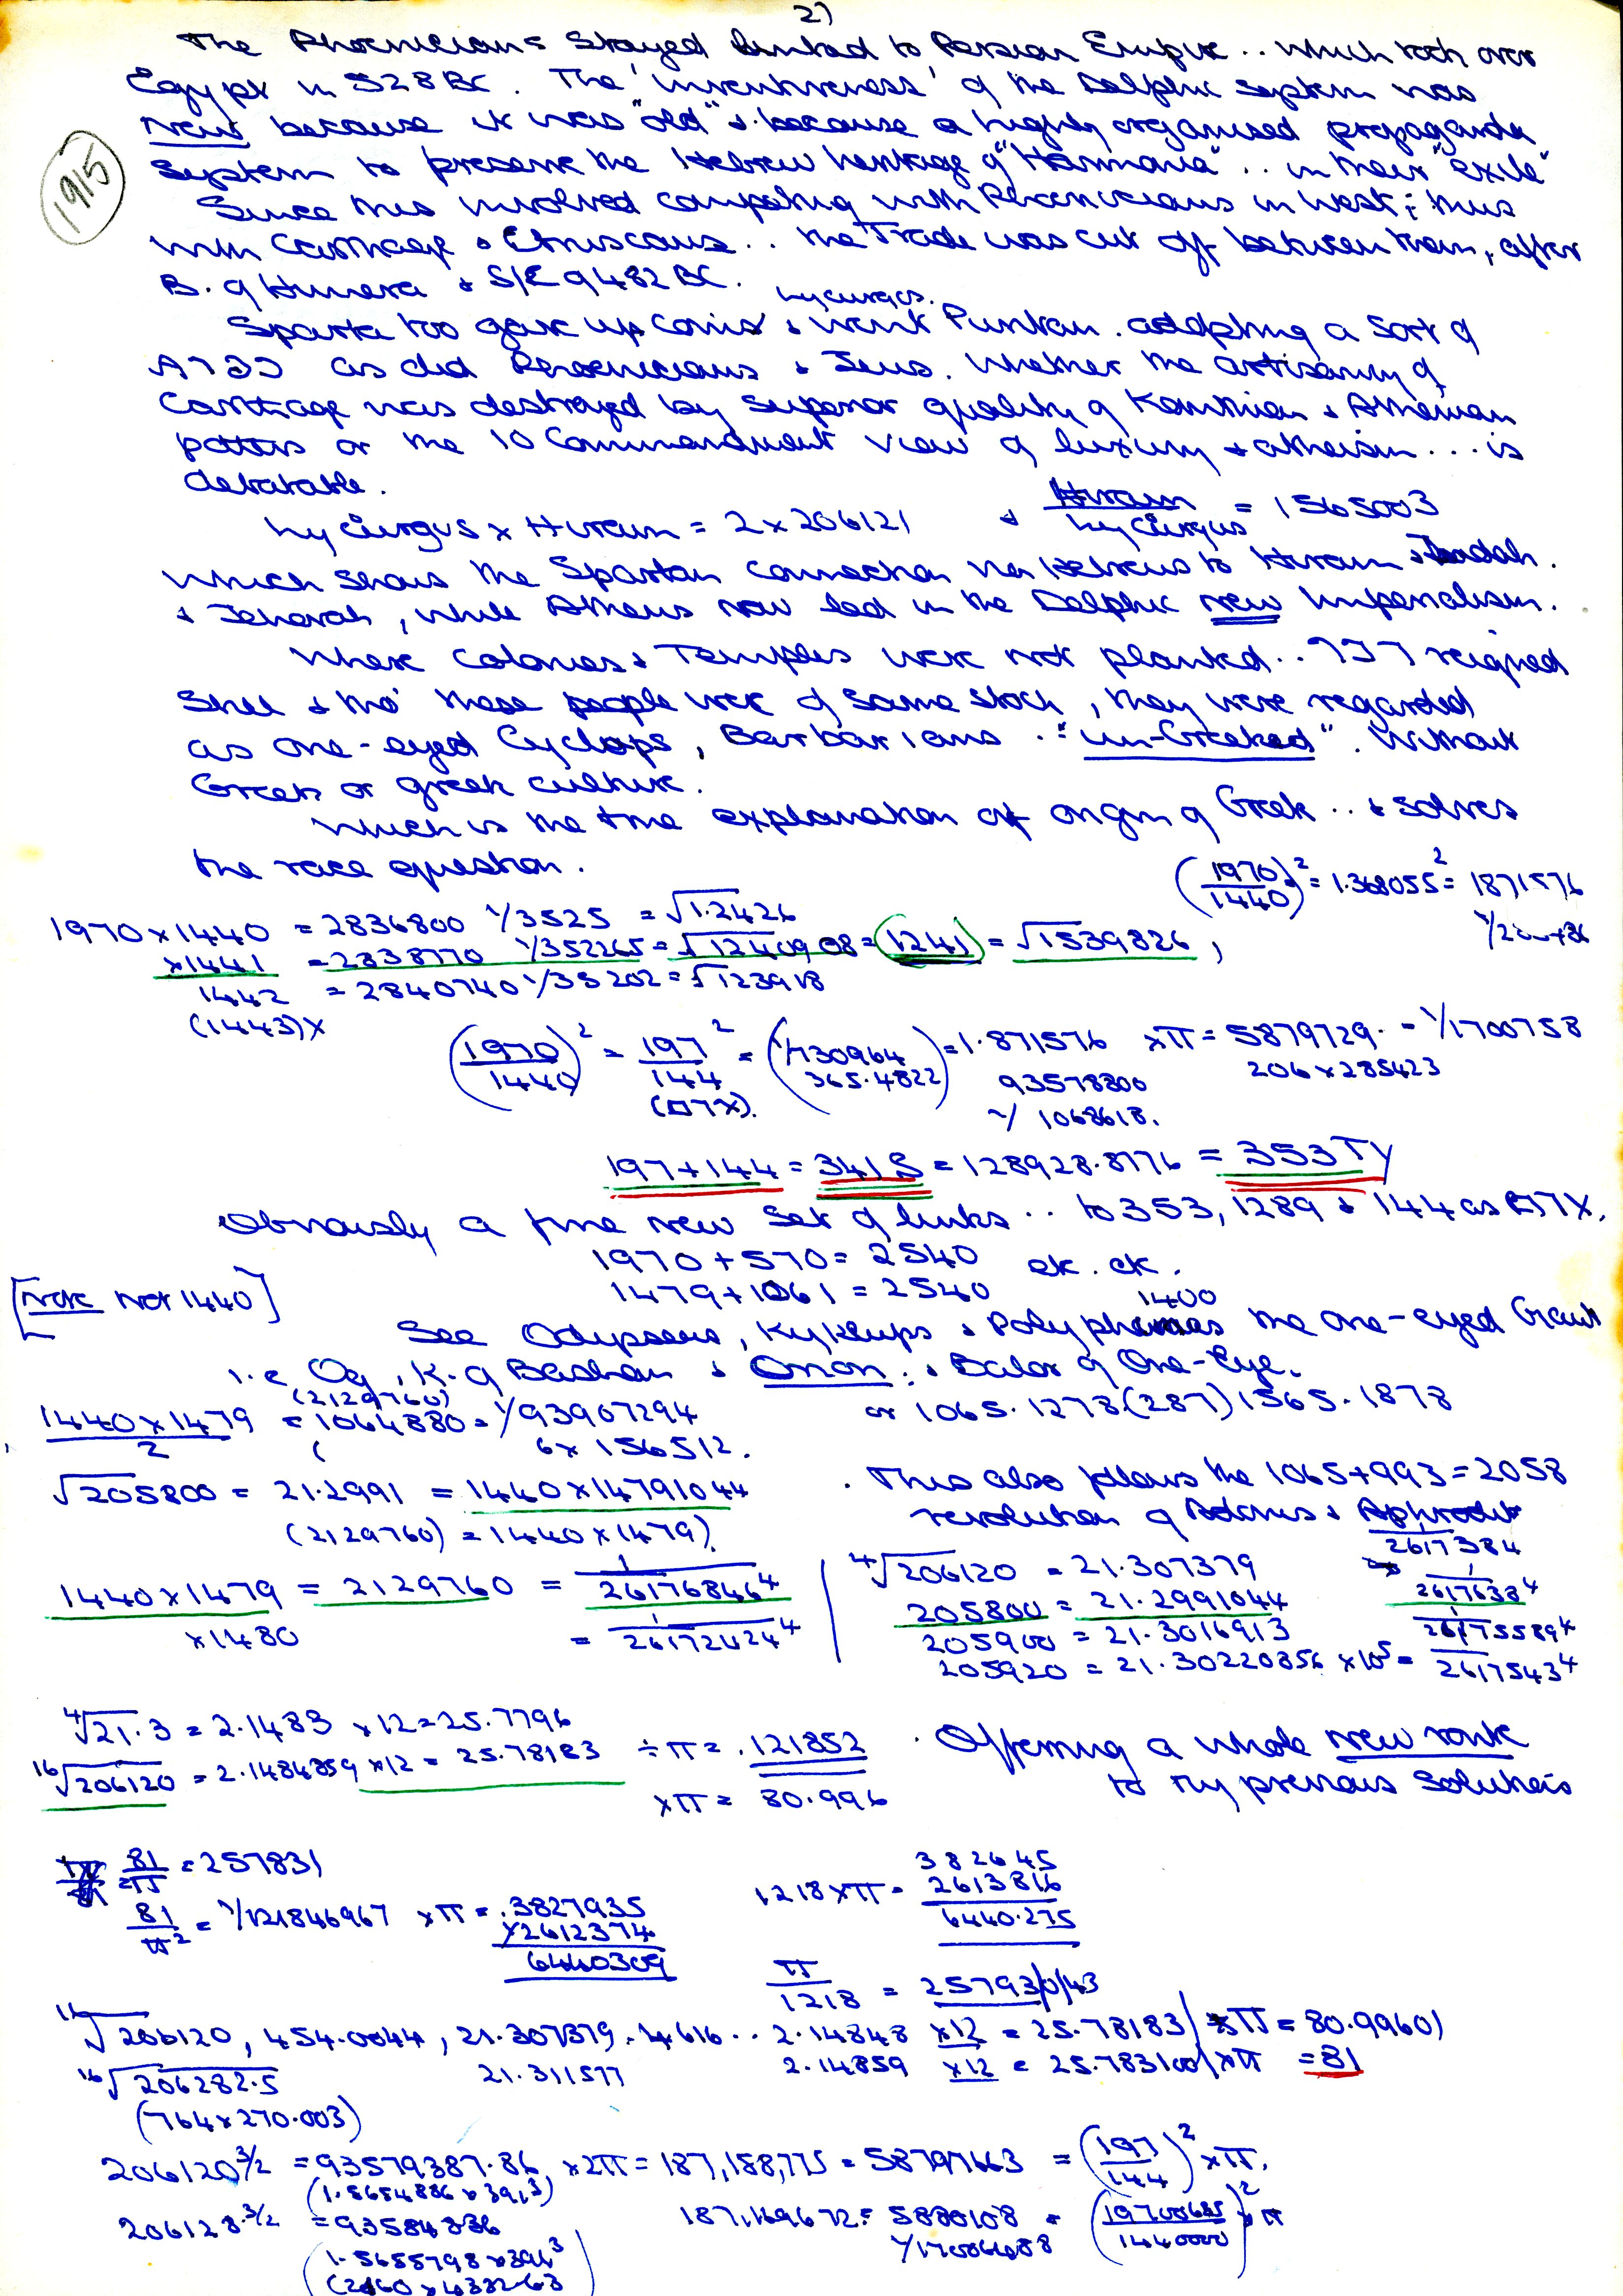 2)
The Phoenicians stayed linked to Persian Empire .. which took over
Egypt in 528 BC. The 'inventiveness' of the Delphic system was
new because it was "old" & because a highly organised propaganda
system to preserve the Hebrew heritage of "Harmonia" .. in their "exile"
1915
Since this involved competing with Phoenicians in West; thus
with Carthage & Etruscans .. the Trade was cut off between them, after
B. of Himera & S/E of 482 BC.
Lycurgos.
Sparta too gave up coins & went Puritan. adopting a sort of
as did Phoenicians & Jews. Whether the artisanry of
Carthage was destroyed by superior quality of Korinthian & Athenian
potters or the 10 Commandment view of luxury & atheism ... is
debatable.
Lycurgus x Hiram = 2 x 206121 & Hiram/Lycurgus = 1565003
which shows the Spartan connection via Hebrews to Hiram & Judah.
& Jehovah, while Athens now led in the Delphic new Imperialism.
Where colonies & Temples were not planted .. reigned
still & tho' these people were of same stock, they were regarded
as one-eyed Cyclops, Barbarians . "un-Greeked". Without
Greek or greek culture.
Which is the true explanation of origin of Greek .. & solves
the race question.
(1970/1440)² = 1.368055² = 1871576
1970 x 1440 = 2836800 1/3525 = √1.2426
x 1441 = 2838770 1/352265 = √1240908 = (1241) = √1539826,
1442 = 2840740 1/35202 = √123918
(1443)x
(1970/1440)² = 197/144² = (1/730964 365.4822) = 1.871576 xπ = 5879729. = 1/1700758
93578800 206 x 285423
1/1068618.
197 + 144 = 341 S = 128928.8776 = 353 TY
Obviously a fine new set of links .. to 353, 1289 & 144 as
1970 + 570 = 2540 etc. etc.
1479 + 1061 = 2540
[Note not 1440]
1400
See Odysseus, Kyklops & Polyphemus the one-eyed Giant
i.e Og, K. of Bashan & Orion. & Balor of One-Eye.
or 1065.1278 (287) 1565.1878
(2129760)
1440 x 1479 / 2 = 1064880 = 1/93907294
6 x 156512.
√205800 = 21.2991 = 1440 x 14791044
(2129760) = 1440 x 1479).
. This also follows the 1065 + 993 = 2058
revolution of Adonis & Aphrodite
1440 x 1479 = 2129760 = 1/26176846⁴
x 1480 = 1/26172424⁴
⁴√206120 = 21.307379 2617384
205800 = 21.2991044 1/2617638⁴
205900 = 21.3016913 1/26175589⁴
205920 = 21.30220856 x 10⁵ = 2617543⁴
⁴√21.3 = 2.1483 x 12 = 25.7796
¹⁶√206120 = 2.1484859 x 12 = 25.78183 ÷ π = .121852
xπ = 80.996
. Offering a whole new rank
to my previous solutions
81/π = 257831
81/π² = 1/121846967 xπ = .3827935
1/2612374
6440309
1.218 x π = 382645
2613816
6440.275
π/1218 = 257930/43
¹⁶√206120, 454.0044, 21.307379. 4.616.. 2.14848 x12 = 25.78183/ xπ = 80.99601
¹⁶√206282.5 21.311577 2.14859 x12 = 25.783100/ xπ = 81
(764 x 270.003)
206120^3/2 = 93579387.86, x2π = 187,158,775 = 58797663 = (197/144)² x π.
(1.5654886 x 391³)
206128^3/2 = 93584836 187,169672 = 5880108 = (19700685/1440000)² x π
1/170064088
(1.5655798 x 391³